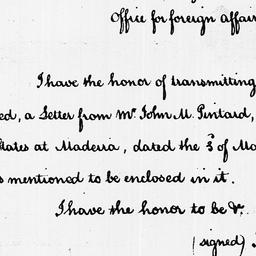 Office for foreign affair
I have the honor of transmitting
ed, a Letter from Mr. John M. Pintard,
tates at Maderia, dated the 3 of Ma
s mentioned to be enclosed in it.
I have the honor to be &c.
(signed)